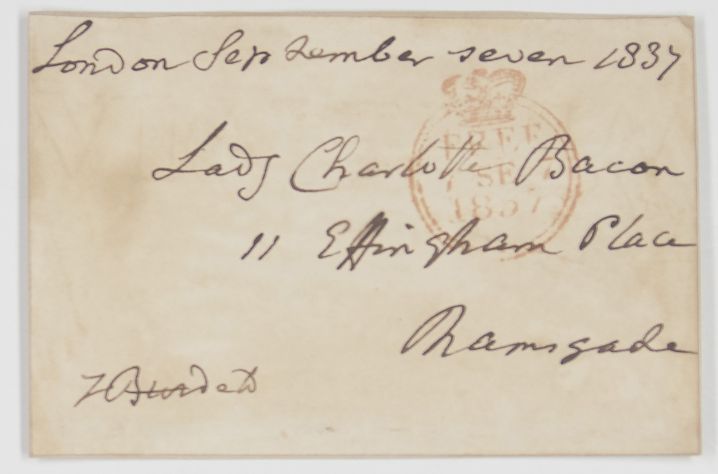 London September seven 1837
FREE
7 SE 7
1837
Lady Charlotte Bacon
11 Effingham Place
Ramsgade
F Burdett